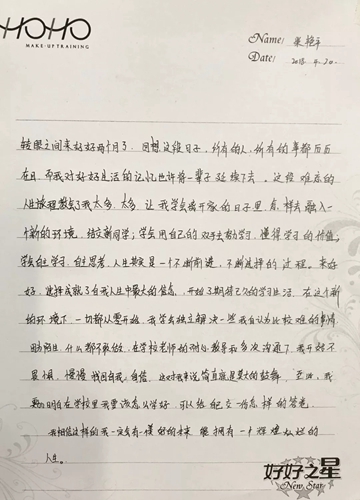 HOHO
MAKE-UP TRAINING
Name: 张艳平
Date: 2018. 4. 20.
转眼之间来好好两个月了，回想这段日子，所有的人，所有的事都历历
在目，而我对好好生活的记忆也许将一辈子延续下去。这段难忘的
人生旅程教会了我太多太多，让我学会离开家的日子里，怎样去融入一
个新的环境，结交新同学；学会用自己的双手去努力学习，懂得学习的价值；
学会自主学习，自主思考，人生其实是一个不断前进，不断选择的过程。来好
好，选择成就了自我人生中最大的信念，开始了期待已久的学习生活，在这个新
的环境下，一切都从零开始，我学会独立解决一些我自认为比较难的事情，
什么都不敢做，在学校老师的耐心教导和多次沟通下，我开始不
畏惧，慢慢找回自我，自信，这对我来说简直就是莫大的鼓舞，至此，我
明白在学校里我要该怎么学好，可以给纪交一份怎样的答卷。
我相信这样的我一定会有一样好的未来，能拥有一个辉煌灿烂的
人生。
好好之星
New Star